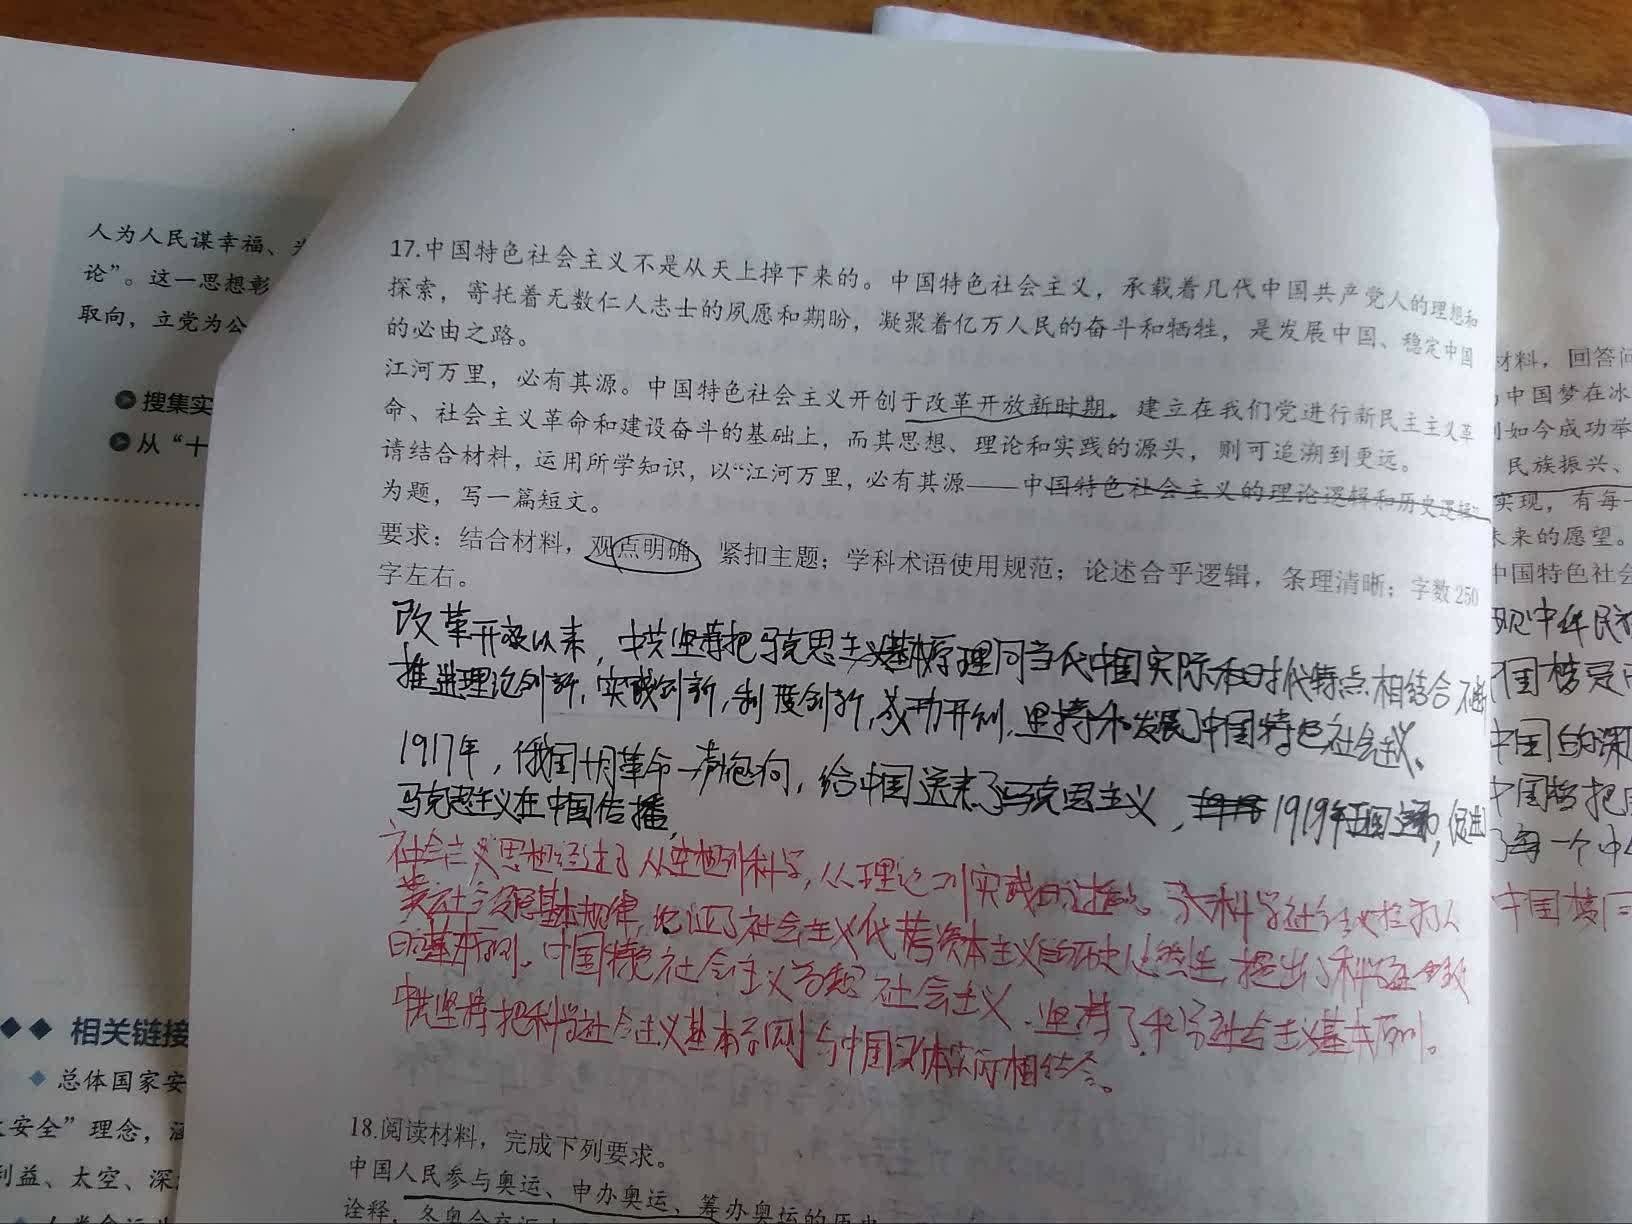 人为人民谋幸福、
论”。这一思想彰
取向，立党为公
搜集实
从“十
相关链接
总体国家安
安全”理念，
利益、太空、深
17.中国特色社会主义不是从天上掉下来的。中国特色社会主义，承载着几代中国共产党人的理想和
探索，寄托着无数仁人志士的夙愿和期盼，凝聚着亿万人民的奋斗和牺牲，是发展中国、稳定中国
的必由之路。
江河万里，必有其源。中国特色社会主义开创于改革开放新时期，建立在我们党进行新民主主义革
命、社会主义革命和建设奋斗的基础上，而其思想、理论和实践的源头，则可追溯到更远。
请结合材料，运用所学知识，以“江河万里，必有其源——中国特色社会主义的理论逻辑和历史逻辑”
为题，写一篇短文。
要求：结合材料，观点明确，紧扣主题；学科术语使用规范；论述合乎逻辑，条理清晰；字数250
字左右。
改革开放以来，中共坚持把马克思主义基本原理同当代中国实际和时代特点相结合，不断
推进理论创新，实践创新，制度创新，成功开创，坚持和发展了中国特色社会主义。
1917年，俄国十月革命一声炮响，给中国送来了马克思主义，1919年五四运动，促进
马克思主义在中国传播，
社会主义思想经过了从空想到科学，从理论到实践的过程。科学社会主义揭示人
类社会发展基本规律，论证了社会主义代替资本主义的历史必然性，提出了科学社会主义
的基本原则。中国特色社会主义 社会主义，坚持了科学社会主义基本原则。
中共坚持把科学社会主义基本原则与中国具体实际相结合。
18.阅读材料，完成下列要求。
中国人民参与奥运、申办奥运、筹办奥运的历史
诠释，冬奥会
材料，回答问
中国梦在冰
如今成功举
民族振兴、
实现，有每一
未来的愿望。
中国特色社会
现中华民族
国梦是
中国的深
中国梦把
了每一个中
中国梦